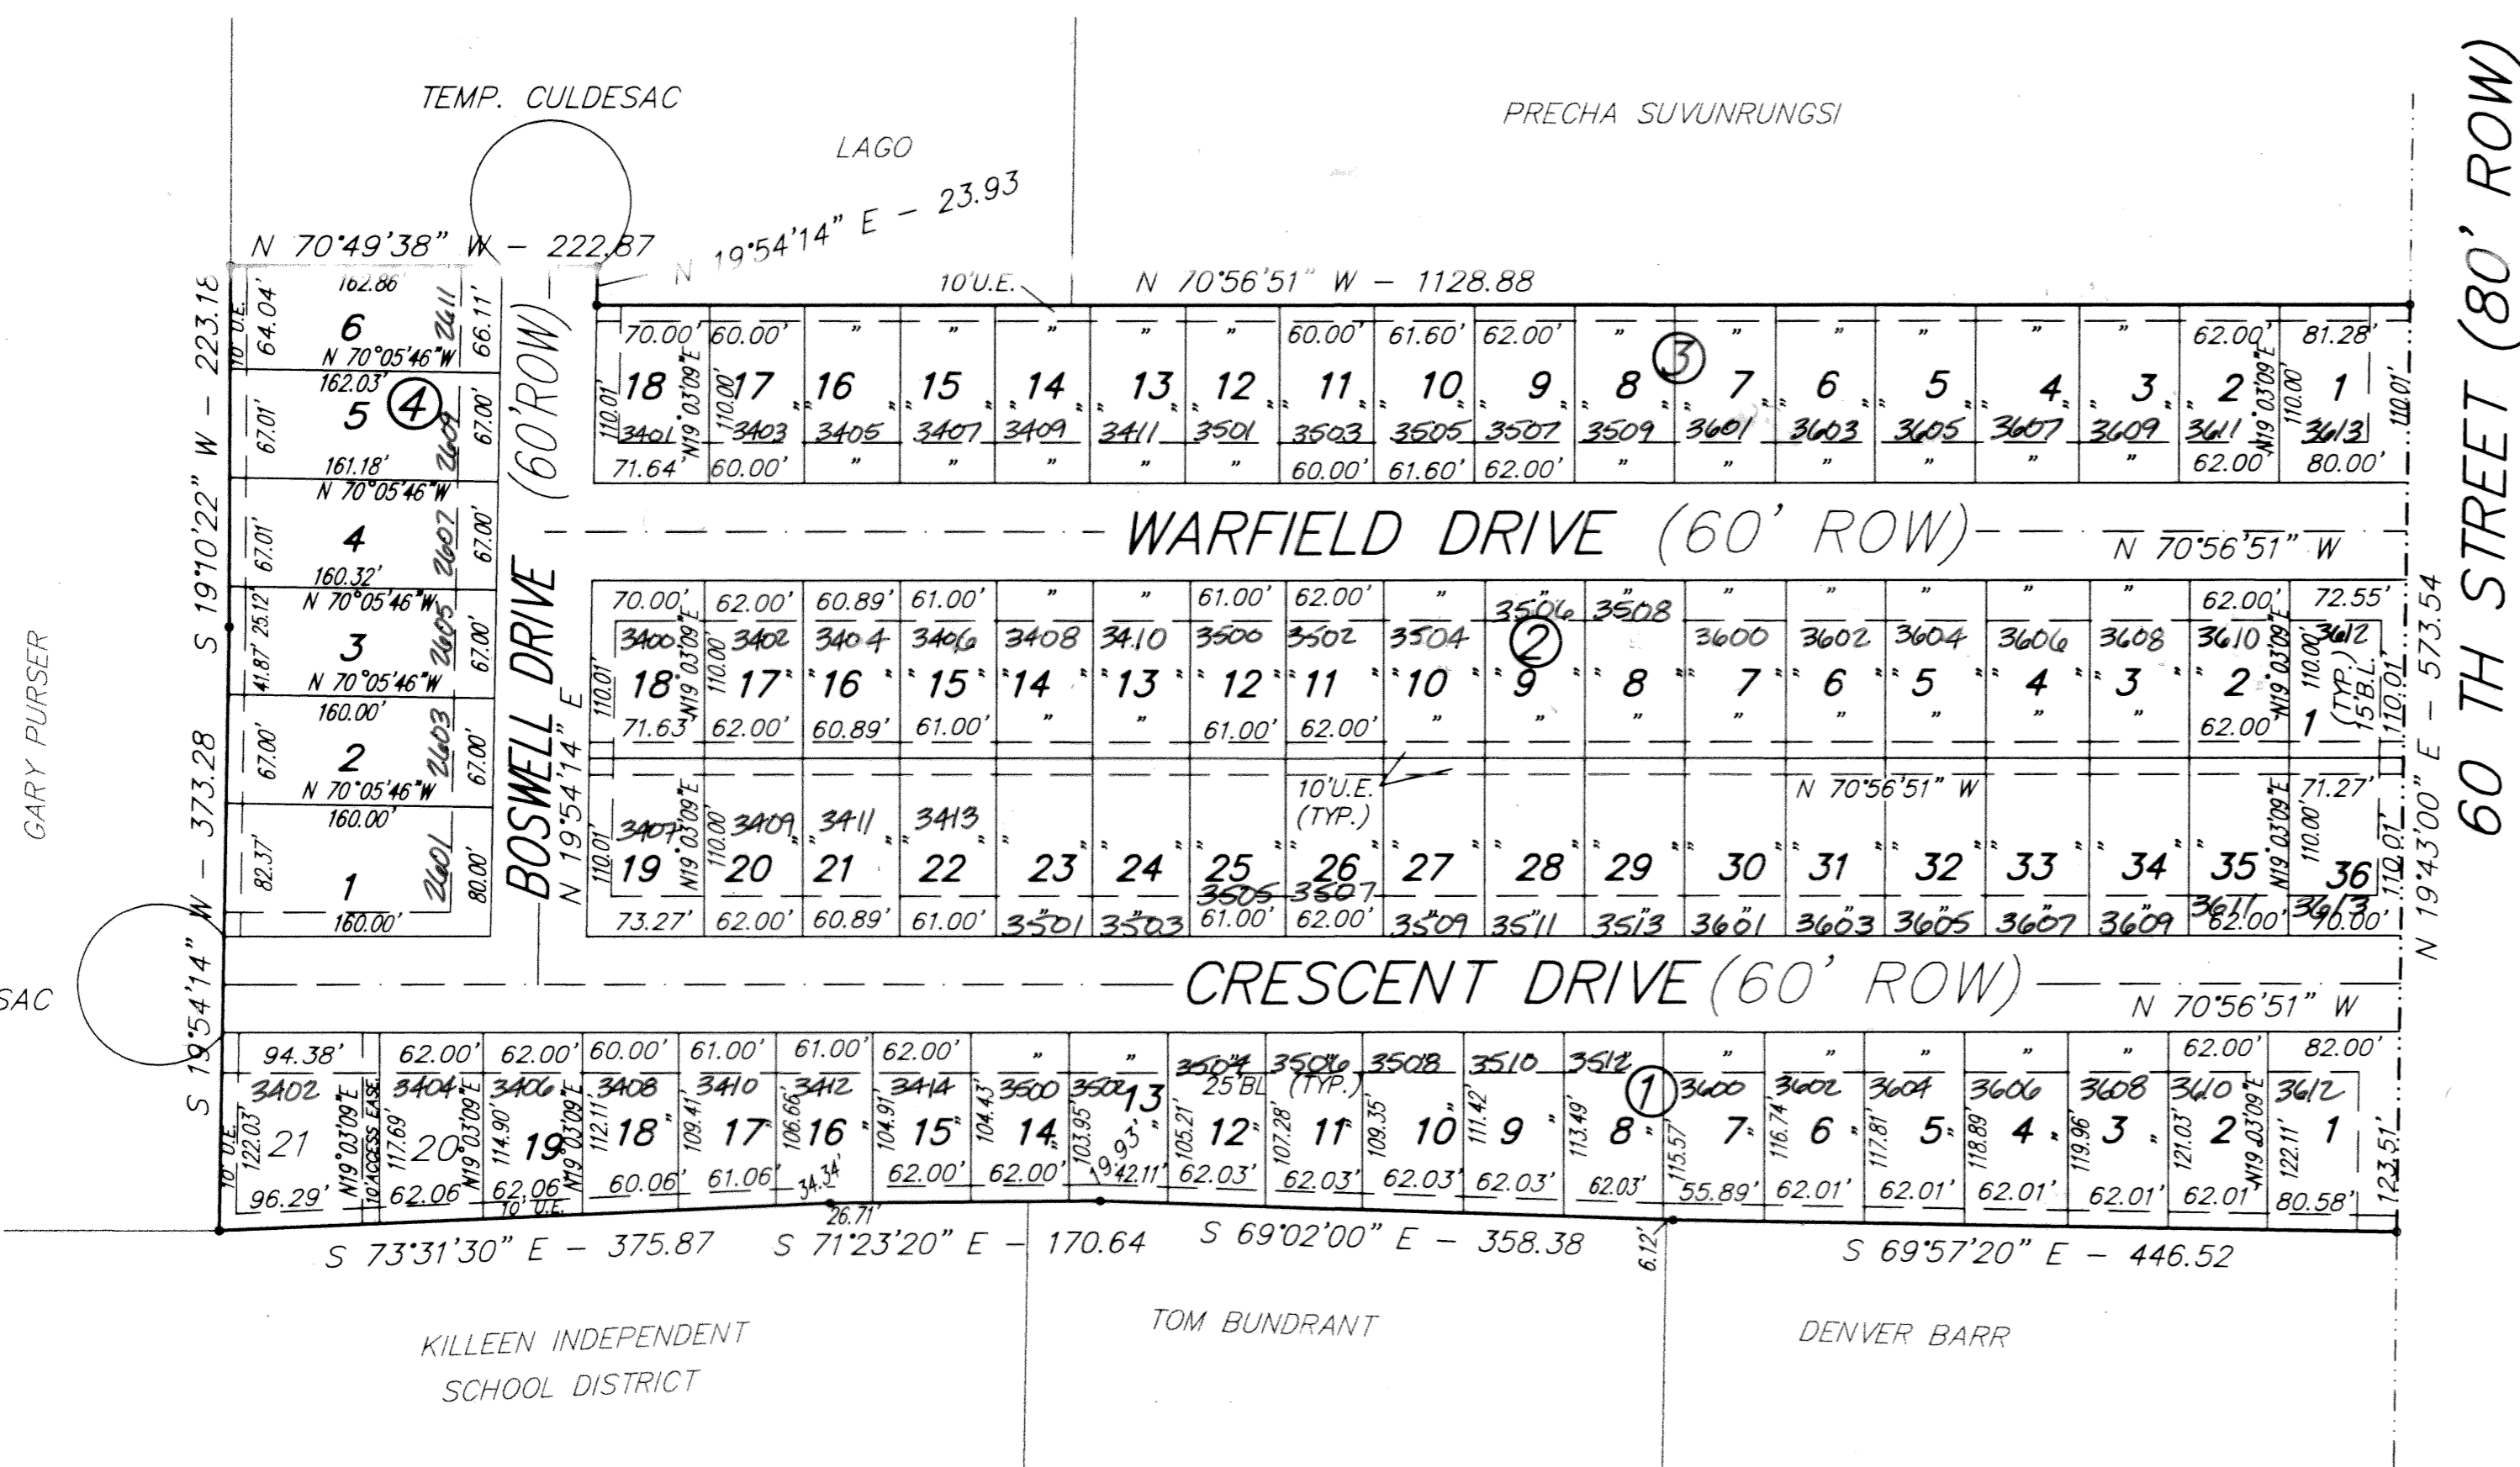 TEMP. CULDESAC
LAGO
PRECHA SUVUNRUNGSI
60 TH STREET (80' ROW)
N 70°49'38" W – 222.87
N 19°54'14" E – 23.93
10'U.E.
N 70°56'51" W – 1128.88
S 19°10'22" W – 223.18
S 19°54'14" W – 373.28
N 19°43'00" E – 573.54
GARY PURSER
SAC
BOSWELL DRIVE (60'ROW)
N 19°54'14" E
10' U.E. 64.04' 162.86' 6 2611 66.11'
N 70°05'46"W
162.03'
67.01' 5 4 2609 67.00'
161.18'
N 70°05'46"W
67.01' 4 2607 67.00'
160.32'
N 70°05'46"W
41.87' 25.12' 3 2605 67.00'
N 70°05'46"W
160.00'
67.00' 2 2603 67.00'
N 70°05'46"W
160.00'
82.37' 1 2601 80.00'
160.00'
70.00' 60.00' " " " " " 60.00' 61.60' 62.00' " " " " " " 62.00' 81.28'
3
110.01' 18 N19°03'09"E 110.00' 17 16 15 14 13 12 11 10 9 8 7 6 5 4 3 2 N19°03'09"E 110.00' 1 110.01'
3401 3403 3405 3407 3409 3411 3501 3503 3505 3507 3509 3601 3603 3605 3607 3609 3611 3613
71.64' 60.00' " " " " " 60.00' 61.60' 62.00' " " " " " " 62.00' 80.00'
WARFIELD DRIVE (60' ROW)
N 70°56'51" W
70.00' 62.00' 60.89' 61.00' " " 61.00' 62.00' " " " " " " " " 62.00' 72.55'
3400 3402 3404 3406 3408 3410 3500 3502 3504 3506 3508 3600 3602 3604 3606 3608 3610 3612
2
110.01' 18 N19°03'09"E 110.00' 17 16 15 14 13 12 11 10 9 8 7 6 5 4 3 2 N19°03'09"E 1 110.00' (TYP.) 15'B.L. 110.01'
71.63' 62.00' 60.89' 61.00' " " 61.00' 62.00' " " " " " " " " 62.00'
10'U.E.
(TYP.)
N 70°56'51" W
71.27'
3407 3409 3411 3413
110.01' 19 N19°03'09"E 110.00' 20 21 22 23 24 25 26 27 28 29 30 31 32 33 34 35 N19°03'09"E 110.00' 36 110.01'
3505 3507
73.27' 62.00' 60.89' 61.00' 3501 3503 61.00' 62.00' 3509 3511 3513 3601 3603 3605 3607 3609 3611 62.00' 3613 70.00'
CRESCENT DRIVE (60' ROW)
N 70°56'51" W
94.38' 62.00' 62.00' 60.00' 61.00' 61.00' 62.00' " " 3504 3506 3508 3510 3512 " " " " " 62.00' 82.00'
25'BL (TYP.)
3402 3404 3406 3408 3410 3412 3414 3500 3502 1 3600 3602 3604 3606 3608 3610 3612
10' U.E. 122.03' 21 N19°03'09"E 10'ACCESS EASE. 117.69' 20 N19°03'09"E 114.90' 19 N19°03'09"E 112.11' 18 109.41' 17 106.66' 16 104.91' 15 104.43' 14 103.95' 13 105.21' 12 107.28' 11 109.35' 10 111.42' 9 113.49' 8 115.57' 7 116.74' 6 117.81' 5 118.89' 4 119.96' 3 121.03' 2 N19°03'09"E 122.11' 1 123.51'
96.29' 62.06' 62.06' 60.06' 61.06' 34.34' 62.00' 62.00' 19.93' 42.11' 62.03' 62.03' 62.03' 62.03' 62.03' 55.89' 62.01' 62.01' 62.01' 62.01' 62.01' 80.58'
10' U.E.
26.71'
6.12'
S 73°31'30" E – 375.87
S 71°23'20" E – 170.64
S 69°02'00" E – 358.38
S 69°57'20" E – 446.52
KILLEEN INDEPENDENT
SCHOOL DISTRICT
TOM BUNDRANT
DENVER BARR